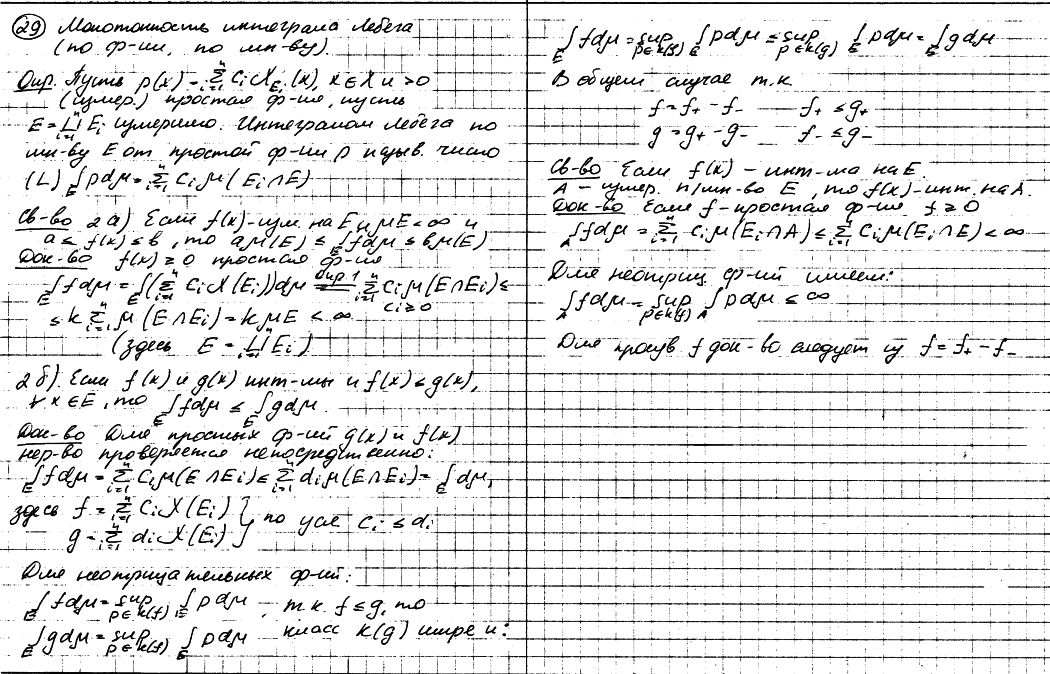 29 Монотонность интеграла Лебега
(по ф-ии, по мн-ву).
Опр. Пусть p(x) = Σ_{i=1}^{n} C_i χ_{E_i}(x), x ∈ X и >0
(измер.) простая ф-ия, пусть
E = ⨆_{i=1}^{n} E_i измеримо. Интегралом Лебега по
мн-ву E от простой ф-ии p назыв. число
(L) ∫_E p dμ = Σ_{i=1}^{n} C_i μ(E_i ∩ E)
Св-во 2а) Если f(x)-изм. на E, μE < ∞ и
a ≤ f(x) ≤ b, то aμ(E) ≤ ∫_E f dμ ≤ bμ(E)
Док-во f(x) ≥ 0 простая ф-ия
∫_E f dμ = ∫_E (Σ_{i=1}^{n} C_i χ(E_i)) dμ = (опр. 1) Σ_{i=1}^{n} C_i μ(E ∩ E_i) ≤
C_i ≥ 0
≤ k Σ_{i=1}^{n} μ(E ∩ E_i) = k μE < ∞
(здесь E = ⨆_{i=1}^{n} E_i)
2б). Если f(x) и g(x) инт-мы и f(x) ≤ g(x),
∀ x ∈ E, то ∫_E f dμ ≤ ∫_E g dμ.
Док-во Для простых ф-ий g(x) и f(x)
нер-во проверяется непосредственно:
∫_E f dμ = Σ_{i=1}^{n} C_i μ(E ∩ E_i) ≤ Σ_{i=1}^{n} d_i μ(E ∩ E_i) = ∫_E dμ,
здесь f = Σ_{i=1}^{n} C_i χ(E_i) } по усл C_i ≤ d_i
g = Σ_{i=1}^{n} d_i χ(E_i)
Для неотрицательных ф-ий:
∫_E f dμ = sup_{p∈k(f)} ∫_E p dμ, т.к. f ≤ g, то
∫_E g dμ = sup_{p∈k(f)} ∫_E p dμ класс k(g) шире и:
∫_E f dμ = sup_{p∈k(f)} ∫_E p dμ ≤ sup_{p∈k(g)} ∫_E p dμ = ∫_E g dμ
В общем случае т.к
f = f₊ - f₋ f₊ ≤ g₊
g = g₊ - g₋ f₋ ≤ g₋
Св-во Если f(x) - инт-ма на E.
A - измер. п/мн-во E, то f(x)-инт. на A.
Док-во Если f-простая ф-ия f ≥ 0
∫_A f dμ = Σ_{i=1}^{n} C_i μ(E_i ∩ A) ≤ Σ_{i=1}^{n} C_i μ(E_i ∩ E) < ∞
Для неотриц ф-ий имеем:
∫_A f dμ = sup_{p∈k(f)} ∫_A p dμ ≤ ∞
Для произв f док-во следует из f = f₊ - f₋